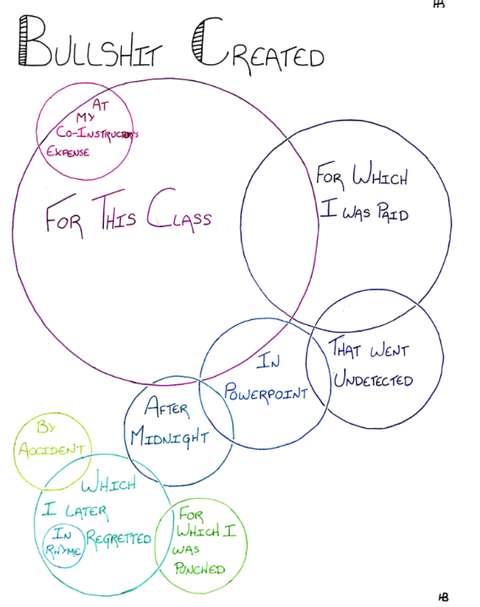 HB
BULLSHIT CREATED
AT
MY
CO-INSTRUCTOR'S
EXPENSE
FOR THIS CLASS
FOR WHICH
I WAS PAID
IN
POWERPOINT
THAT WENT
UNDETECTED
AFTER
MIDNIGHT
BY
ACCIDENT
WHICH
I LATER
REGRETTED
IN
RHYME
FOR
WHICH I
WAS
PUNCHED
HB